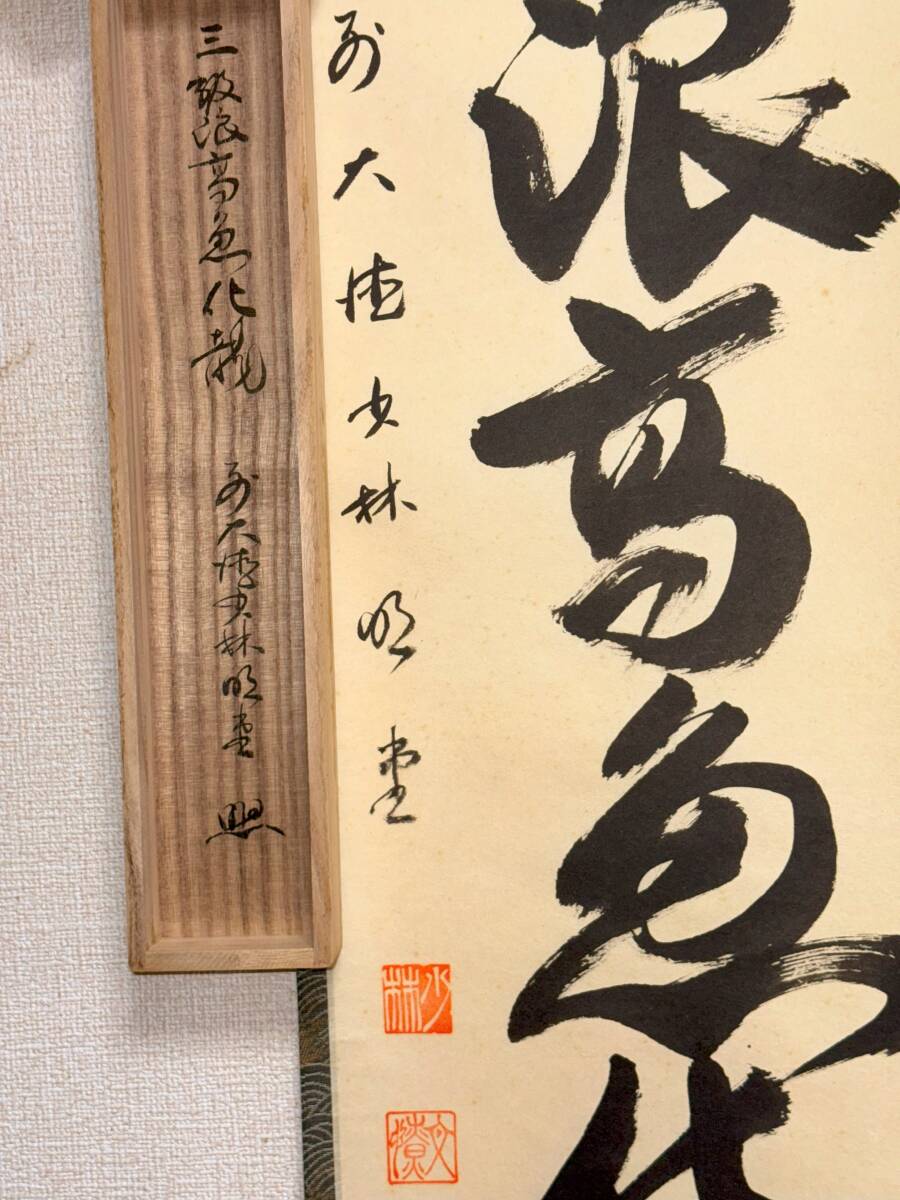 浪高魚化
前大徳少林明堂
少林
三級浪高魚化龍
前大徳少林明堂 照